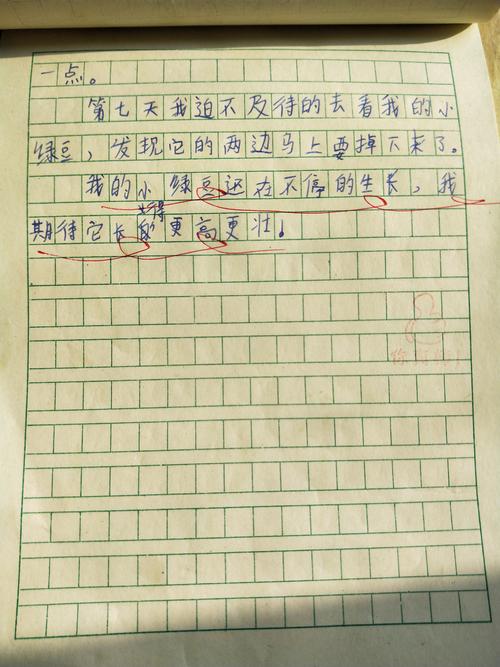 一点。
第七天我迫不及待的去看我的小
绿豆，发现它的两边马上要掉下来了。
我的小绿豆还在不停的生长，我
得
期待它长的更高更壮！